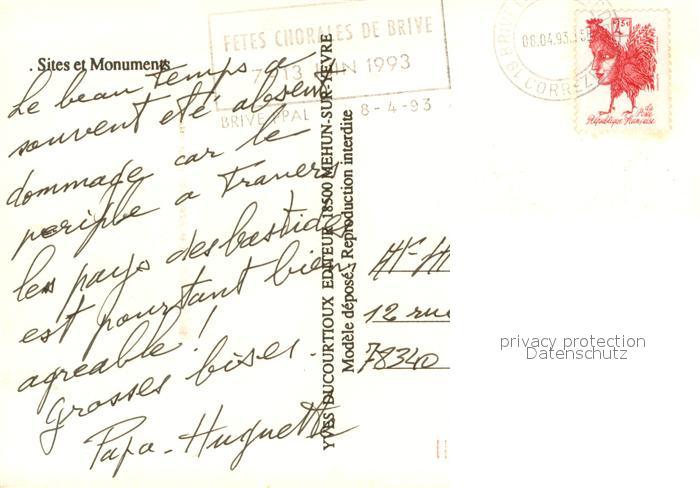 FETES CHORALES DE BRIVE
7 13 JUIN 1993
BRIVE PPAL 8-4-93
BRIVE
08.04.93
19 CORREZE
2,50
La Poste
République Française
. Sites et Monuments
Le beau temps a
souvent été absent
dommage car le
periple a travers
les pays des bastides
est pourtant bien
agreable !
Grosses bises.
Papa - Huguette
YVES DUCOURTIOUX EDITEUR 18500 MEHUN-SUR-YEVRE
Modèle déposé - Reproduction interdite
12 rue
78340
privacy protection
Datenschutz